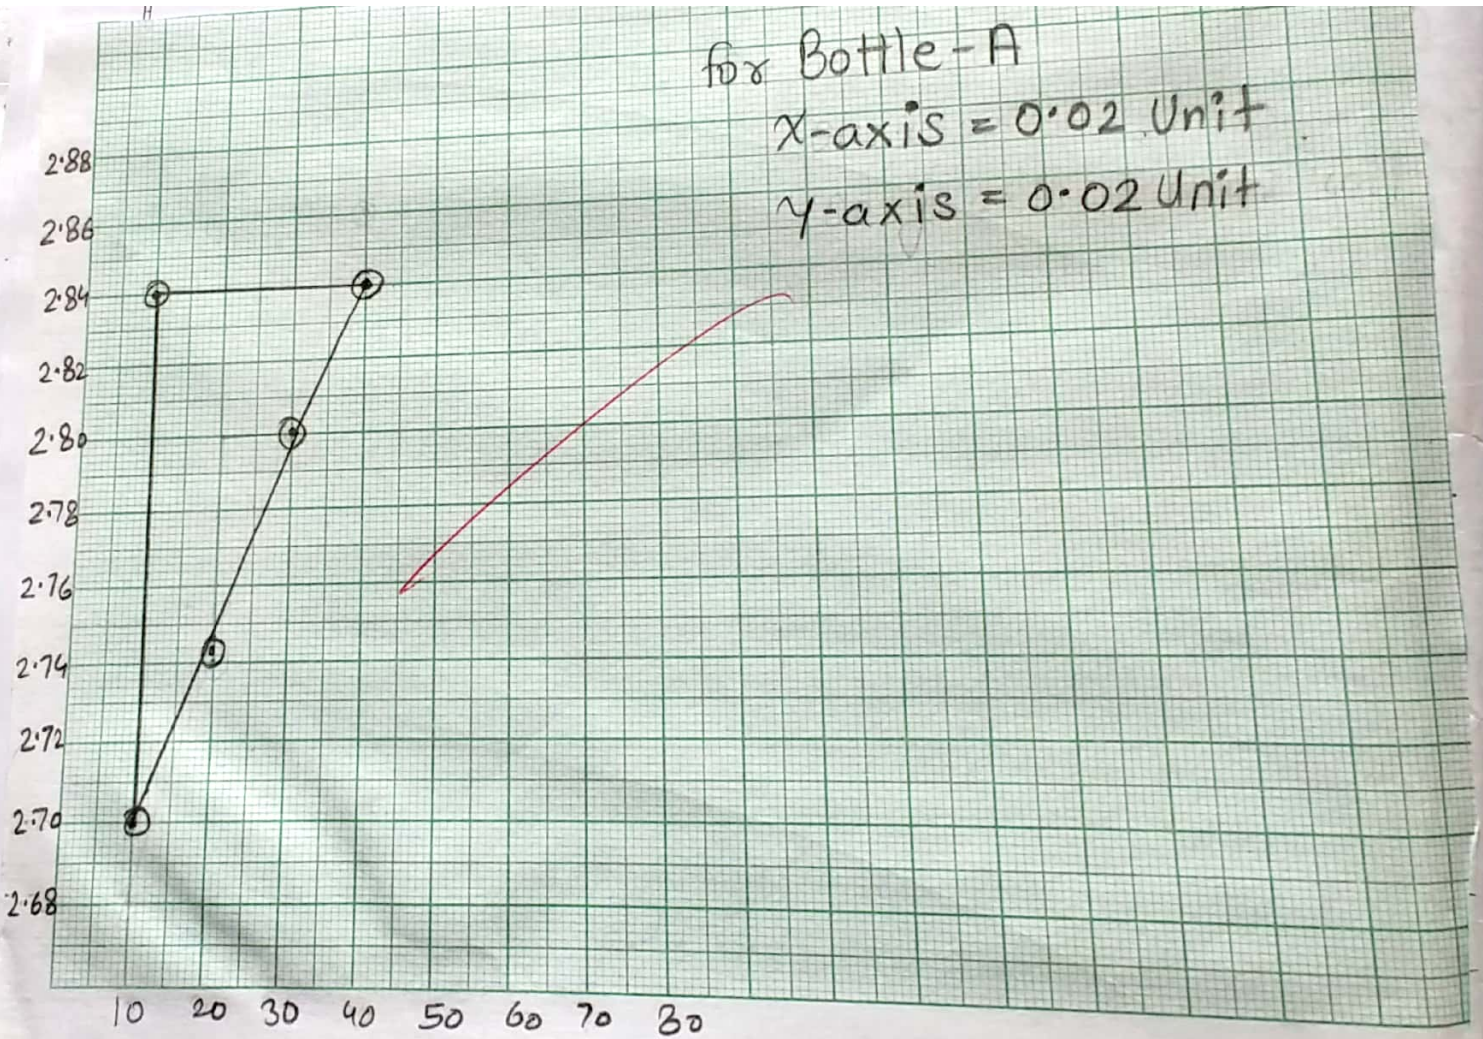 for Bottle-A
X-axis = 0.02 Unit
Y-axis = 0.02 Unit
2.88
2.86
2.84
2.82
2.80
2.78
2.76
2.74
2.72
2.70
2.68
10 20 30 40 50 60 70 80